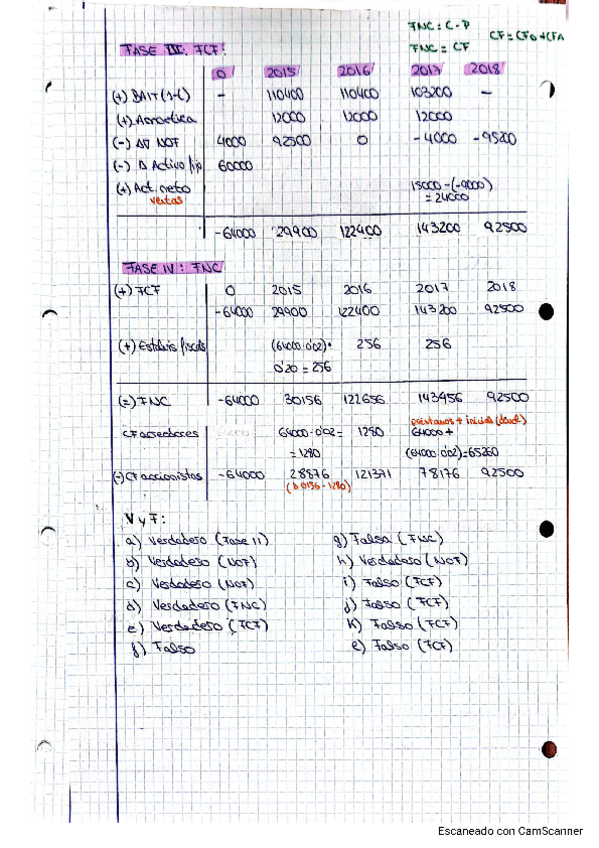 FNC = C - P
FNC = CF
CF = CFo + CFA
FASE III. FCF:
0 2015 2016 2017 2018
(+) BAIT (1-t) - 110400 110400 103200 -
(+) Amortiza 12000 12000 12000
(-) ΔV NOF 4000 92500 0 -4000 -95200
(-) Δ Activo fijo 60000
(+) Act. neto 15000 - (-9000)
ventas = 24000
-64000 29900 122400 143200 92500
FASE IV: FNC
(+) FCF 0 2015 2016 2017 2018
-64000 29900 122400 143200 92500
(+) Escudo fiscal (64000·0'02)· 256 256
0'20 = 256
(=) FNC -64000 30156 122656 143456 92500
préstamos + inicial
CF acreedores 64000·0'02 = 1280 64000 +
= 1280 (64000·0'02) = 65280
(-) CF accionistas -64000 28876 121371 78176 92500
(30156 - 1280)
V y F:
a) Verdadero (Fase II)
b) Verdadero (NOF)
c) Verdadero (NOF)
d) Verdadero (FNC)
e) Verdadero (FCF)
f) Falso
g) Falsa (FNC)
h) Verdadero (NOF)
i) Falso (FCF)
j) Falso (FCF)
k) Falso (FCF)
e) Falso (FCF)
Escaneado con CamScanner